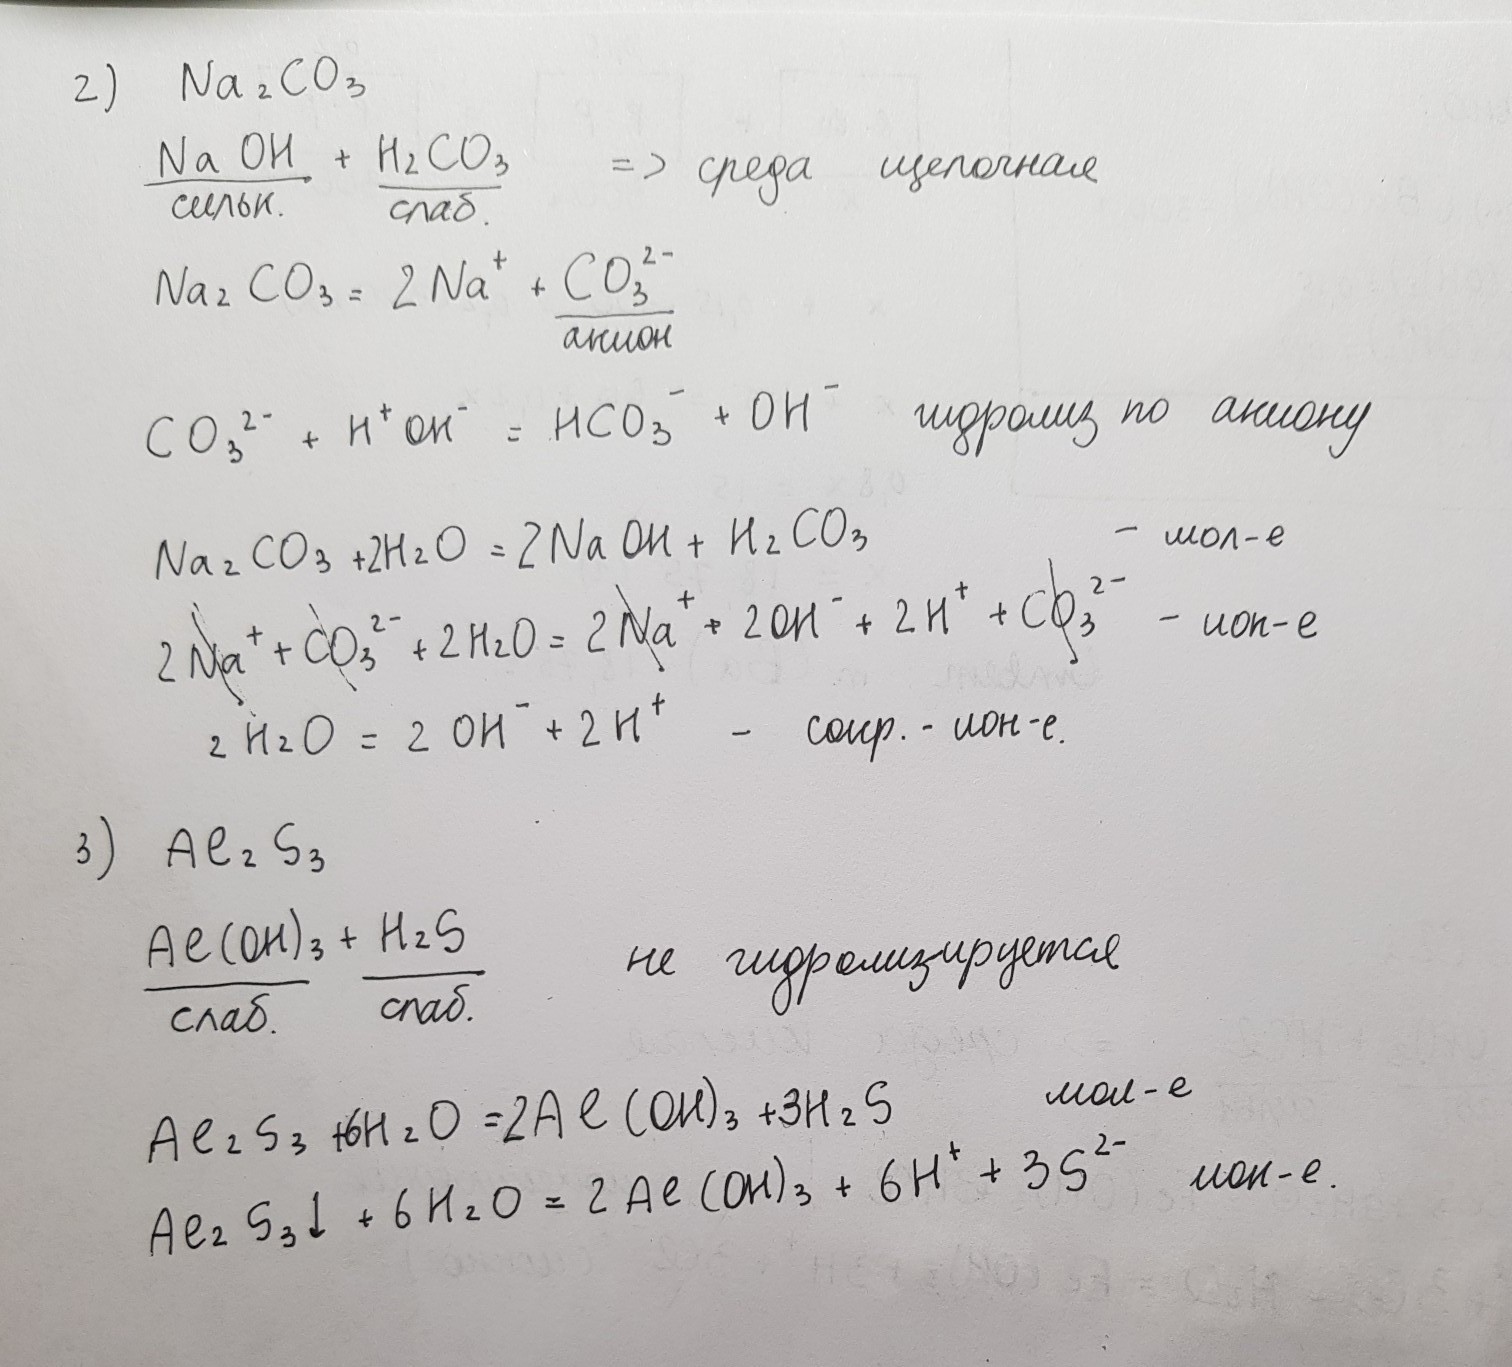 2) Na₂CO₃
NaOH + H₂CO₃ => среда щелочная
сильн. слаб.
Na₂CO₃ = 2Na⁺ + CO₃²⁻
анион
CO₃²⁻ + H⁺OH⁻ = HCO₃⁻ + OH⁻ гидролиз по аниону
Na₂CO₃ + 2H₂O = 2NaOH + H₂CO₃ - мол-е
2Na⁺ + CO₃²⁻ + 2H₂O = 2Na⁺ + 2OH⁻ + 2H⁺ + CO₃²⁻ - ион-е
2H₂O = 2OH⁻ + 2H⁺ - сокр. - ион-е.
3) Al₂S₃
Al(OH)₃ + H₂S не гидролизируется
слаб. слаб.
Al₂S₃ + 6H₂O = 2Al(OH)₃ + 3H₂S мол-е
Al₂S₃↓ + 6H₂O = 2Al(OH)₃ + 6H⁺ + 3S²⁻ ион-е.